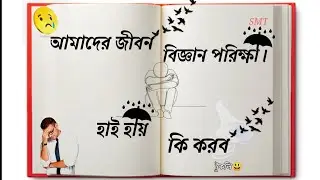 SMT
আমাদের জীবন
বিজ্ঞান পরিক্ষা।
হাই হায়
কি করব